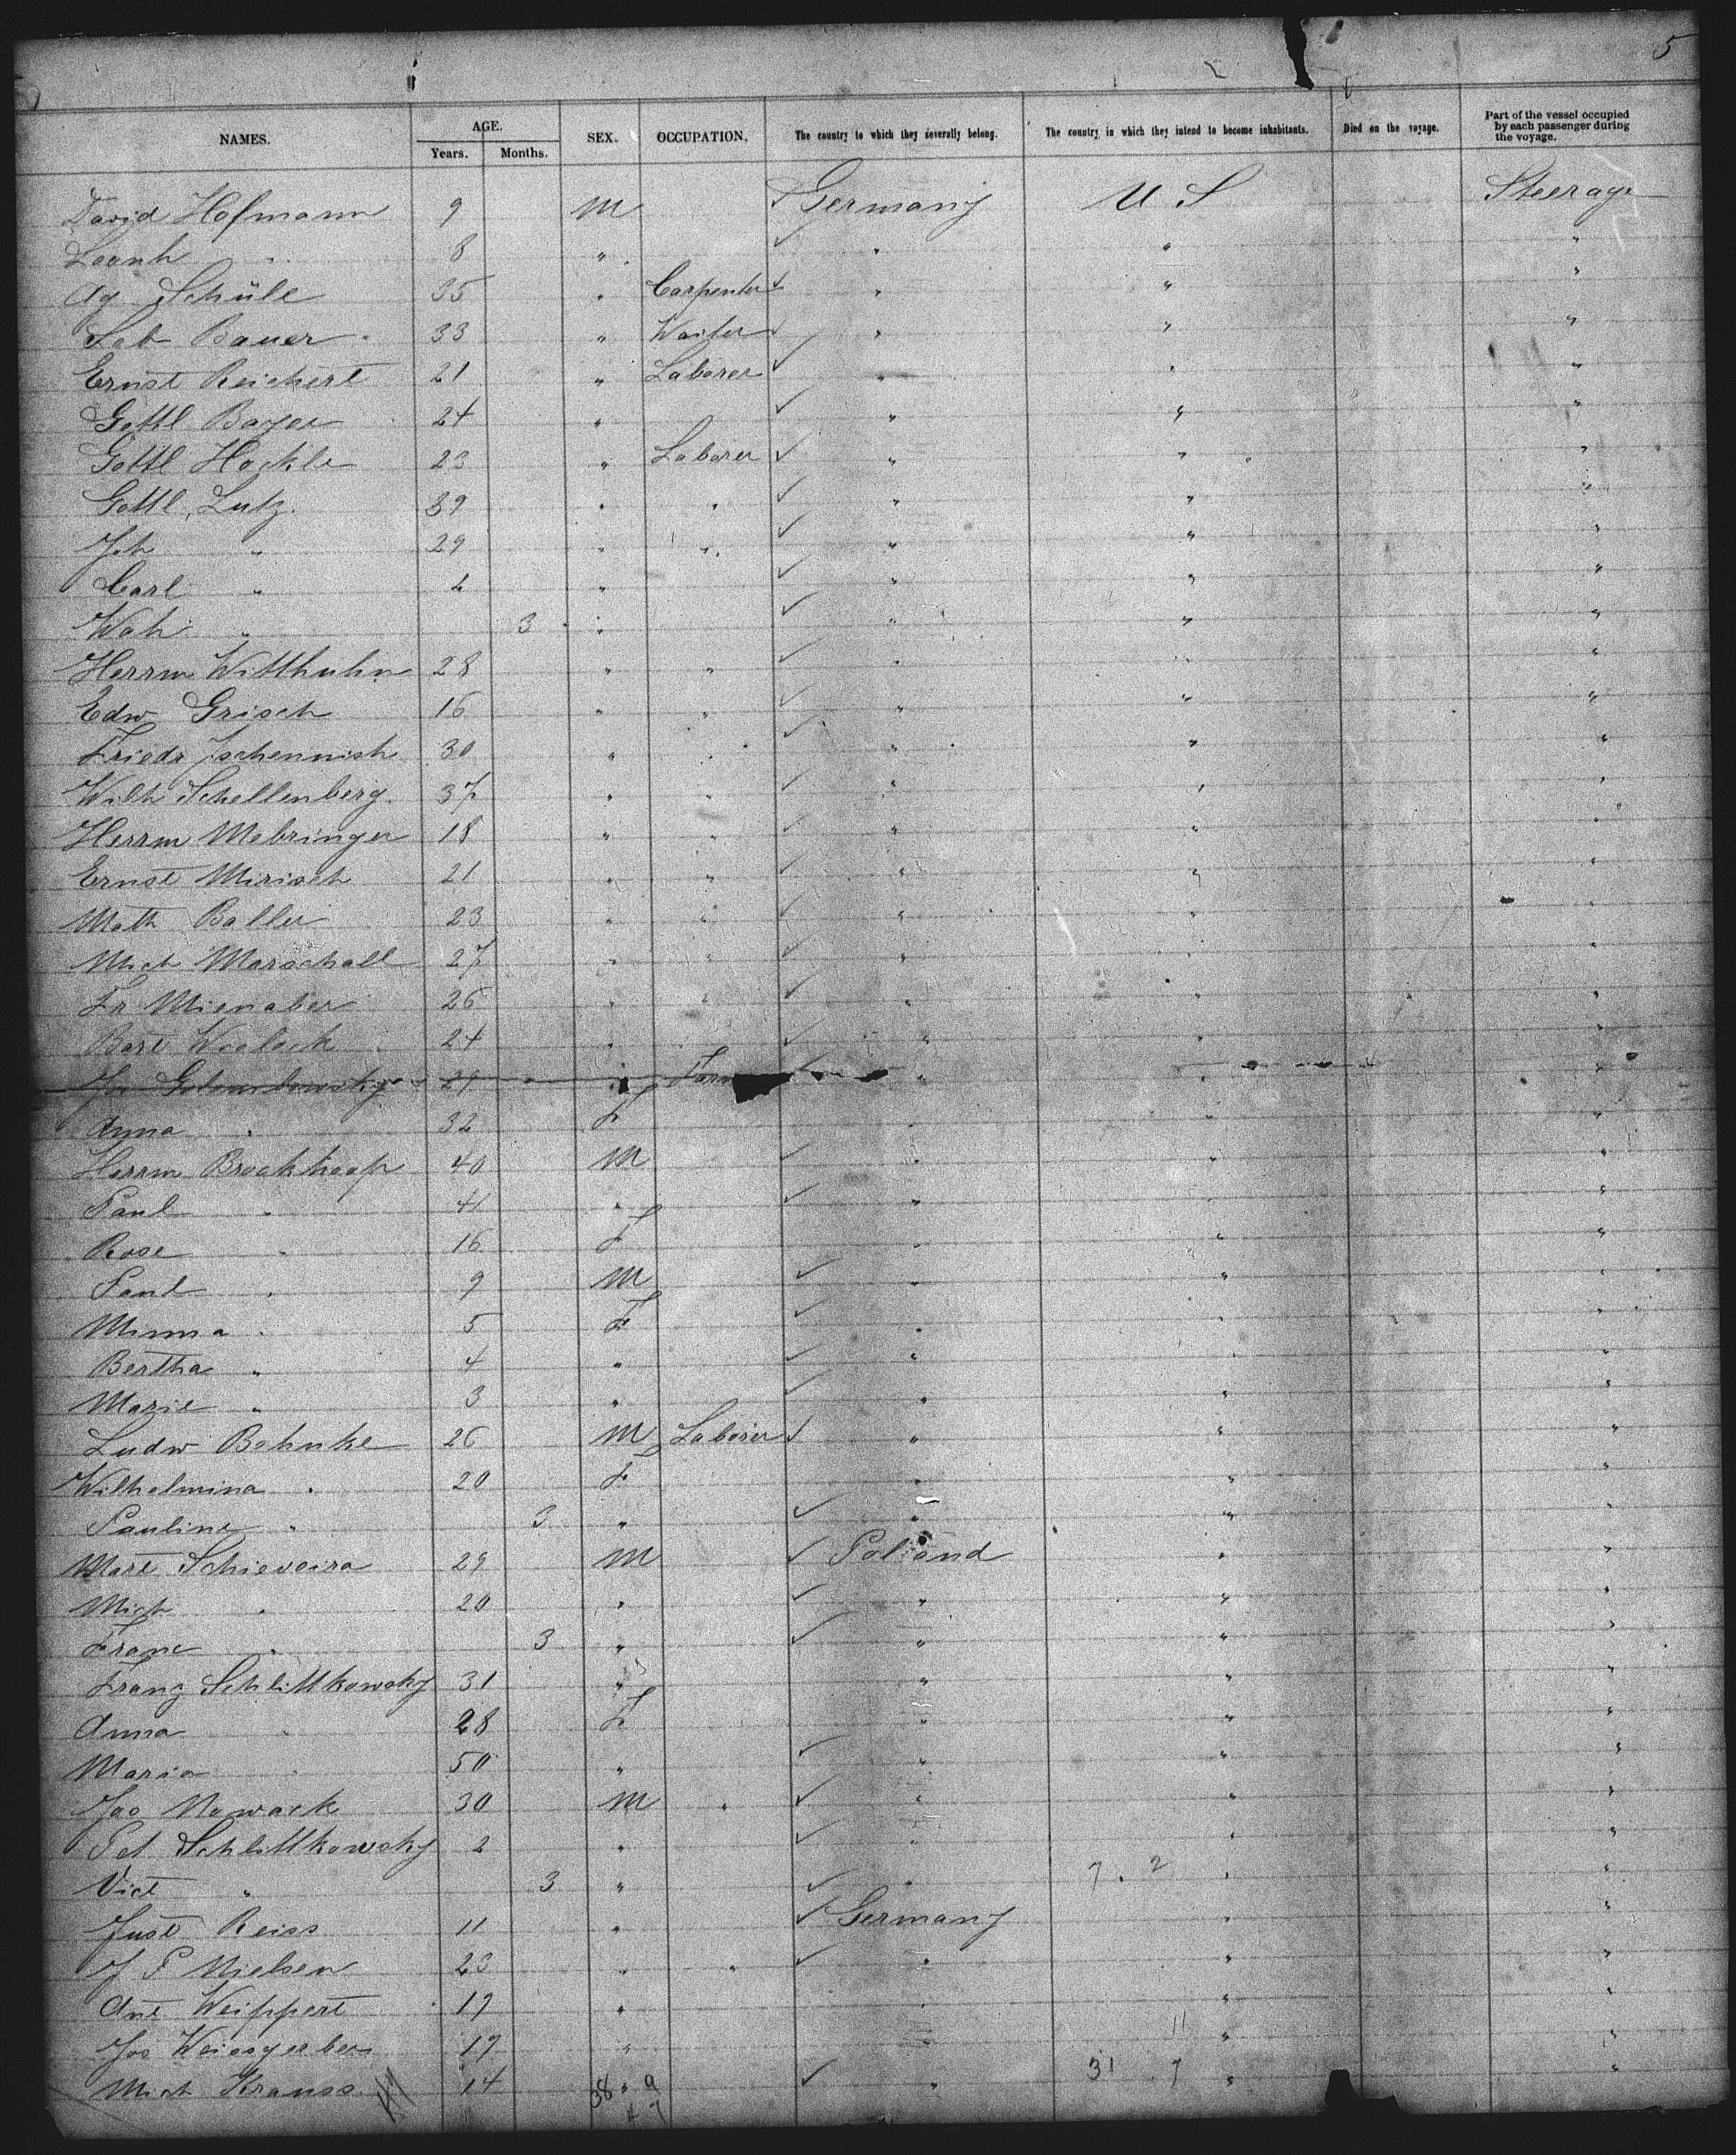 5
NAMES. AGE. SEX. OCCUPATION. The country to which they severally belong. The country in which they intend to become inhabitants. Died on the voyage. Part of the vessel occupied by each passenger during the voyage.
Years. Months.
David Hofmann 9 M Germany U S Steerage
Leonh " 8 " " " "
Ag Schüle 35 " Carpenter " " "
Seb Bauer 33 " Waiter " " "
Ernst Reichert 21 " Laborer " " "
Gottl Bayer 24 " " " "
Gottl Hackle 23 " Laborer " " "
Gottl Lutz 39 " " " " "
Joh " 29 " " " " "
Carl " 2 " " " "
" 3 " " " "
Herrm Witthuhn 28 " " " " "
Edw Grisch 16 " " " " "
Friedr 30 " " " " "
Wilh Schellenberg 37 " " " " "
Herrm Mebringer 18 " " " " "
Ernst Mirisch 21 " " " " "
Math Baller 23 " " " " "
Mich Marschall 27 " " " " "
Fr Mienaber 26 " " " " "
Bart 24 " " " "
29 " " " "
Anna " 32 F " " "
Herrm Brockhoop 40 M " " "
Paul " 41 " " " "
Rose " 16 F " " "
Paul " 9 M " " "
Minna " 5 F " " "
Bertha " 4 " " " "
Marie " 3 " " " "
Ludw Behnke 26 M Laborer " " "
Wilhelmina " 20 F " " "
Pauline " 3 " " " "
Mart Schieveira 29 M Poland " "
Mich " 20 " " " "
Franc " 3 " " " "
Franz Schlittkowsky 31 " " " "
Anna " 28 F " " "
Maria " 50 " " " "
Jos Nowack 30 M " " " "
Pet Schlittkowsky 2 " " " "
Vict " 3 " " 7 . 2 " "
Just Reiss 11 " Germany " "
J P Nielsen 23 " " " " "
Ant Weippert 17 " " " "
Jos Weissgerber 17 " 11 " "
Mich Krauss 14 " " 31 7 " "
38 9